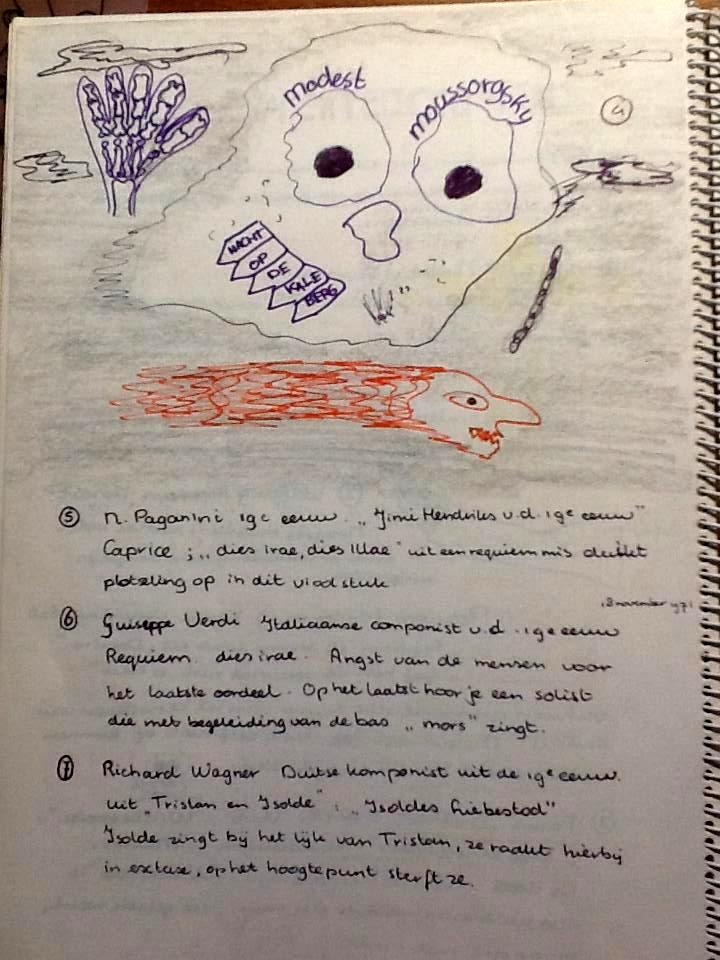 modest
moussorgsky
4
NACHT
OP
DE
KALE
BERG
5 N. Paganini 19e eeuw. „Jimi Hendriks v.d. 19e eeuw"
Caprice ; „dies irae, dies illae" uit een requiem mis duikt
plotseling op in dit vioolstuk
18 november 1971
6 Guiseppe Verdi Italiaanse componist v.d. 19e eeuw
Requiem. dies irae. Angst van de mensen voor
het laatste oordeel. Op het laatst hoor je een solist
die met begeleiding van de bas „mors" zingt.
7 Richard Wagner Duitse komponist uit de 19e eeuw.
uit „Tristan en Isolde" : „Isoldes Liebestod"
Isolde zingt bij het lijk van Tristan, ze raakt hierbij
in extase, op het hoogtepunt sterft ze.